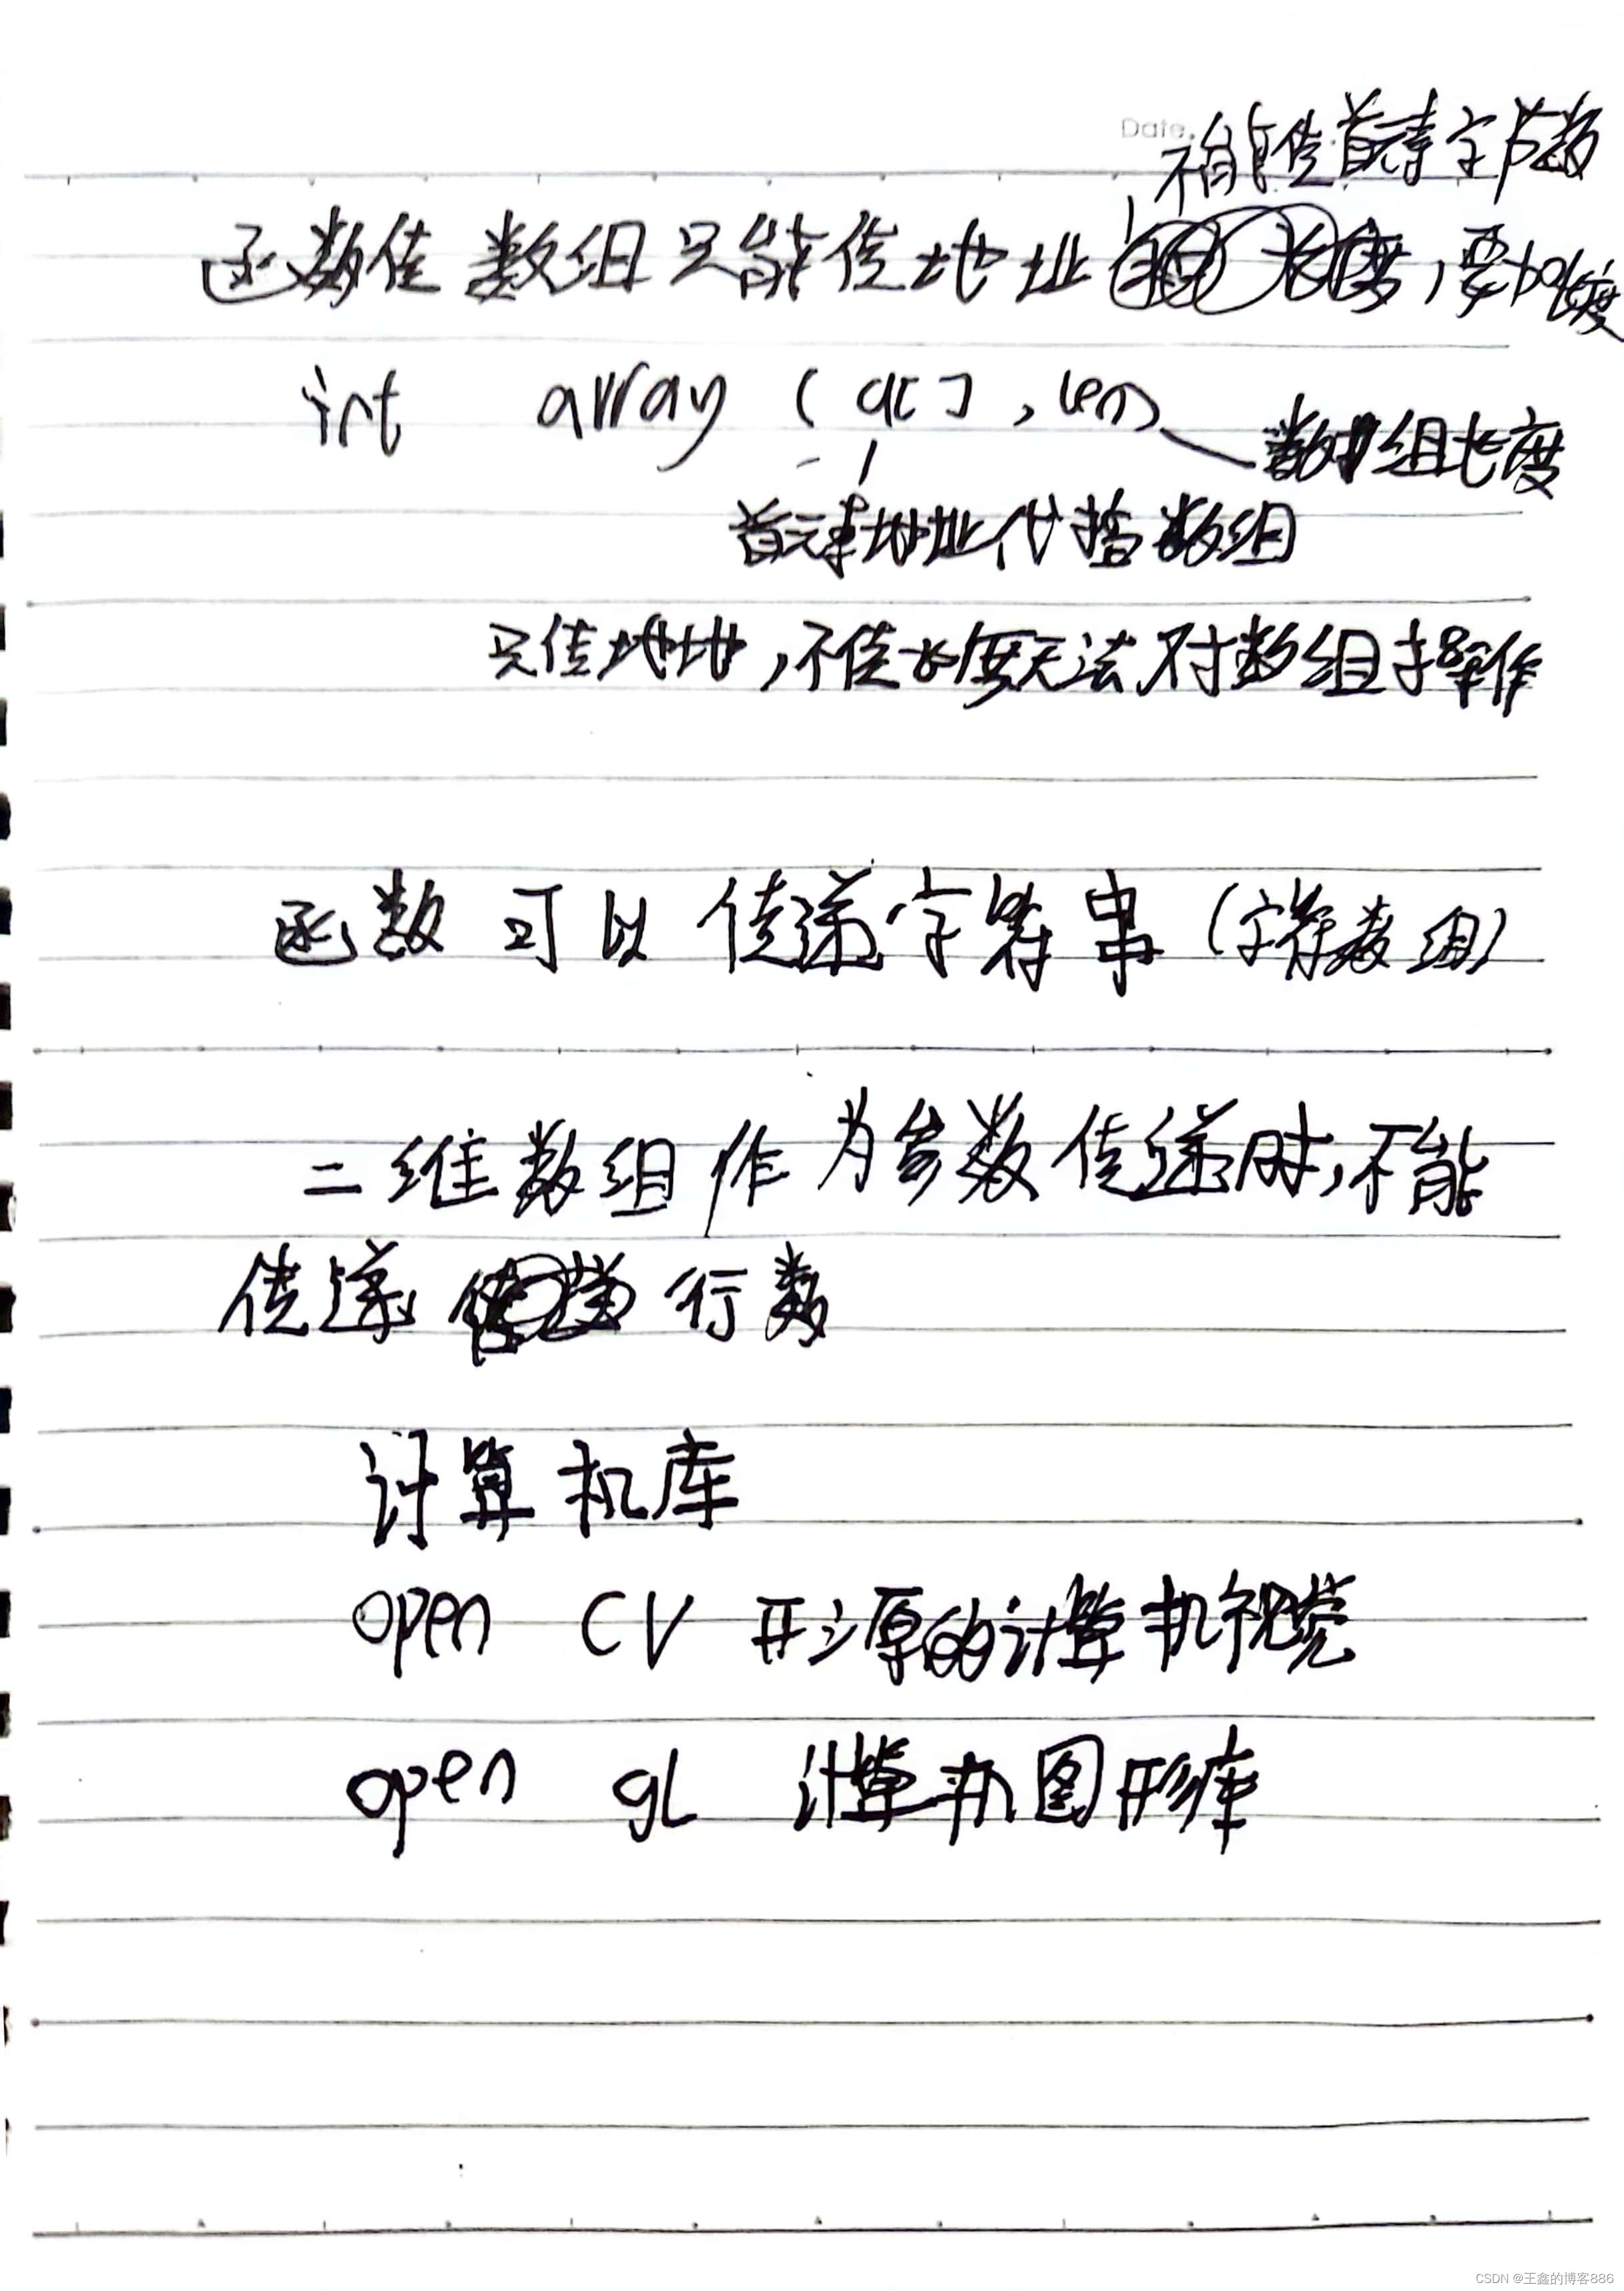 Date.
不能传首元素字节数
函数传数组只能传地址 长度,要加长度
int array (a[], len)
数组长度
首元素地址代指数组
只传地址,不传长度无法对数组操作
函数可以传递字符串(字符数组)
二维数组作为参数传递时,不能
传递 行数
计算机库
open CV 开源的计算机视觉
open gL 计算机图形库
CSDN @王鑫的博客886